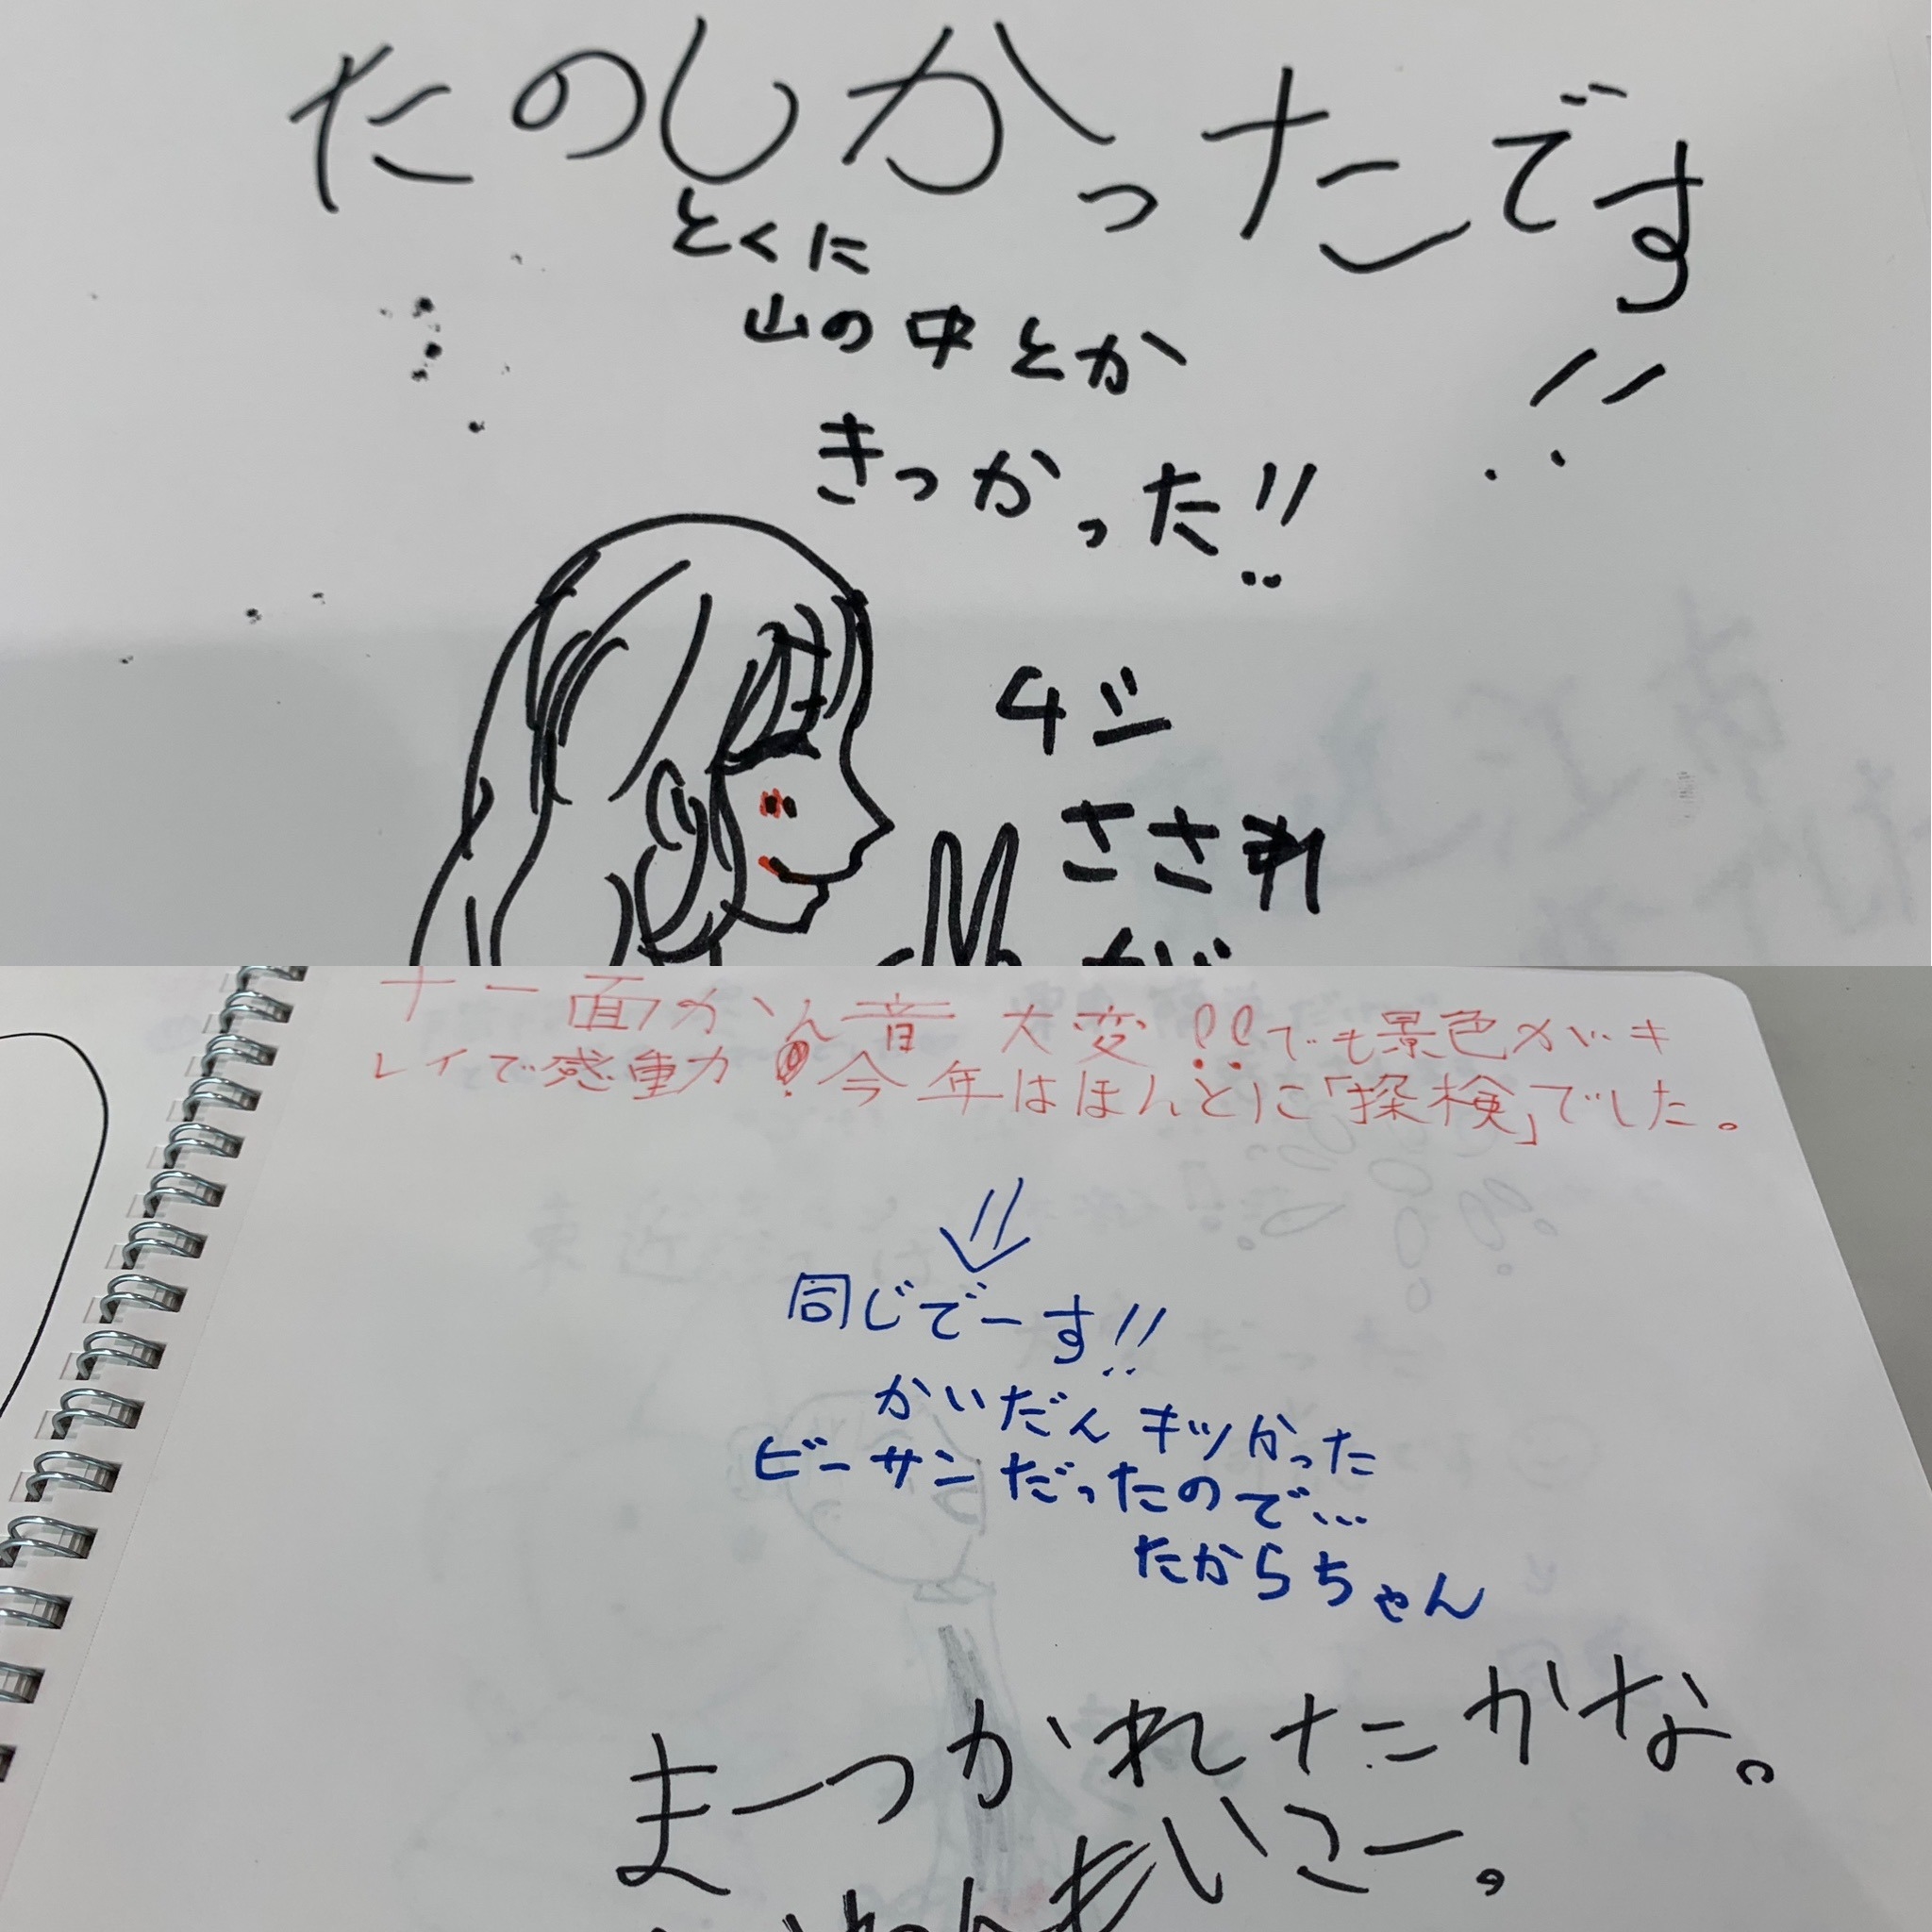 たのしかったです!!
とくに
山の中とか
きつかった!!
ささ
十一面かん音 大変!!でも景色がキ
レイで感動! 今年はほんとに「探検」でした。
同じでーす!!
かいだんキツかった
ビーサンだったので…
たからちゃん
まーつかれたかな。